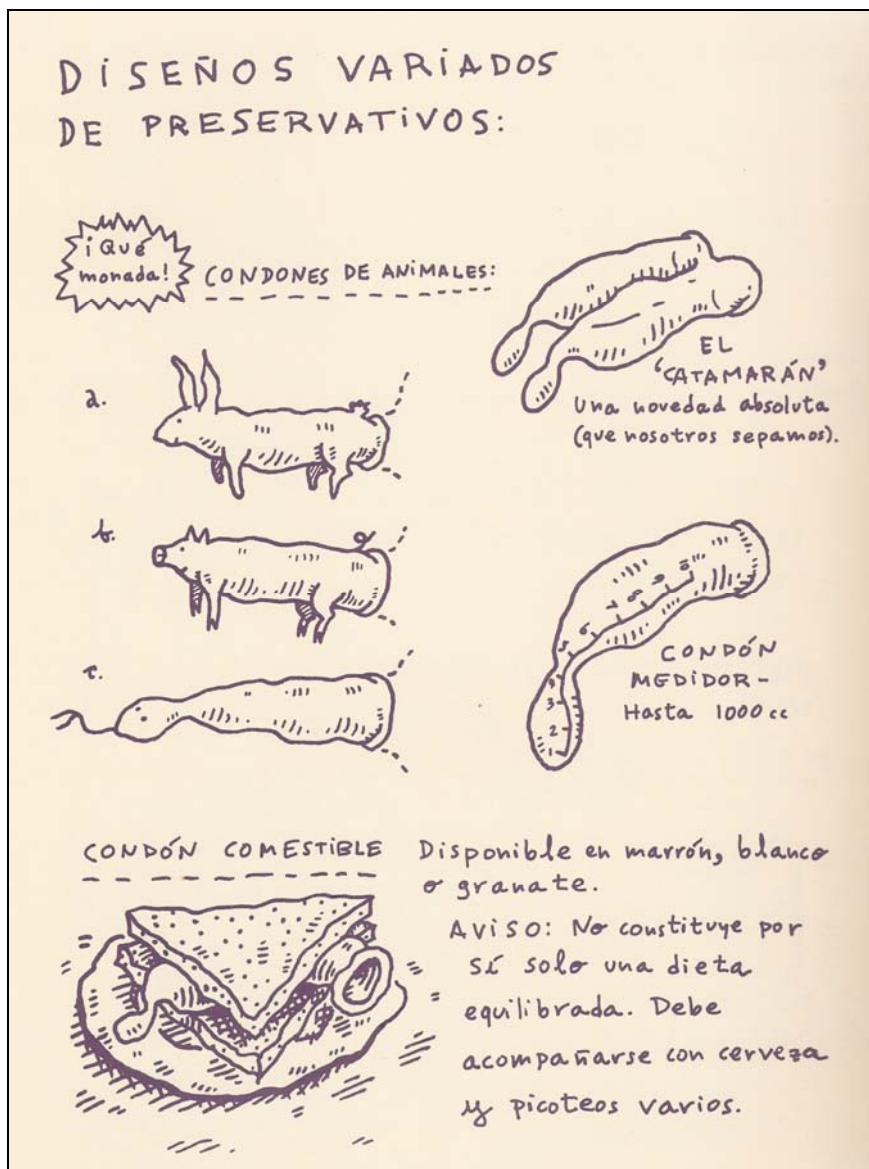 DISEÑOS VARIADOS
DE PRESERVATIVOS:
¡Qué
monada!
CONDONES DE ANIMALES:
a.
b.
c.
EL
'CATAMARÁN'
Una novedad absoluta
(que nosotros sepamos).
CONDÓN
MEDIDOR-
Hasta 1000 cc
1
2
3
4
5
6
7
8
9
10
CONDÓN COMESTIBLE
Disponible en marrón, blanco
o granate.
AVISO: No constituye por
sí solo una dieta
equilibrada. Debe
acompañarse con cerveza
y picoteos varios.